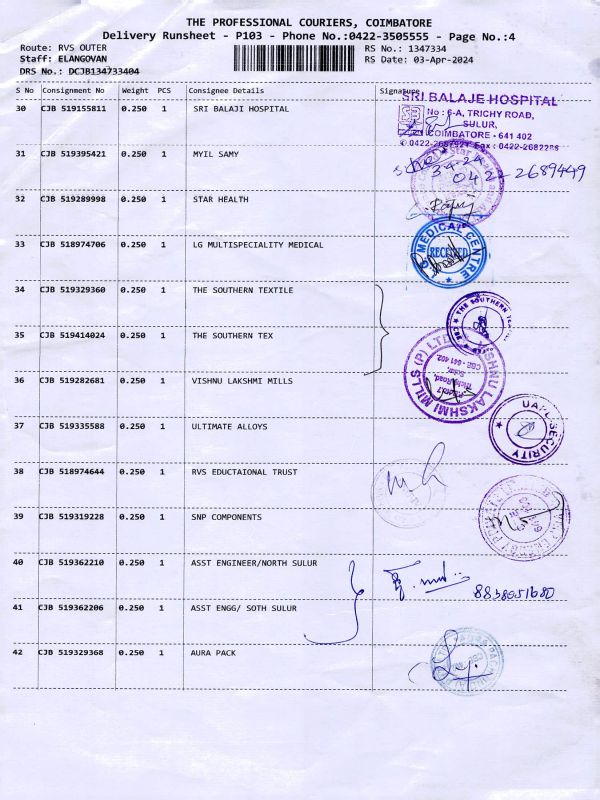 THE PROFESSIONAL COURIERS, COIMBATORE
Delivery Runsheet - P103 - Phone No.:0422-3505555 - Page No.:4
Route: RVS OUTER RS No.: 1347334
Staff: ELANGOVAN RS Date: 03-Apr-2024
DRS No.: DCJB134733404
S No Consignment No Weight PCS Consignee Details Signature
SRI BALAJE HOSPITAL
30 CJB 519155811 0.250 1 SRI BALAJI HOSPITAL No : 6-A, TRICHY ROAD,
SULUR,
COIMBATORE - 641 402
31 CJB 519395421 0.250 1 MYIL SAMY 3-4-24
0422 2689449
32 CJB 519289998 0.250 1 STAR HEALTH
33 CJB 518974706 0.250 1 LG MULTISPECIALITY MEDICAL MEDICAL CENTRE RECEIVED
34 CJB 519329360 0.250 1 THE SOUTHERN TEXTILE
THE SOUTHERN
35 CJB 519414024 0.250 1 THE SOUTHERN TEX
36 CJB 519282681 0.250 1 VISHNU LAKSHMI MILLS VISHNU LAKSHMI MILLS (P) LTD
Trichy Road,
Sulur,
CBE - 641 402
37 CJB 519335588 0.250 1 ULTIMATE ALLOYS UAPL SECURITY
38 CJB 518974644 0.250 1 RVS EDUCTAIONAL TRUST
39 CJB 519319228 0.250 1 SNP COMPONENTS
40 CJB 519362210 0.250 1 ASST ENGINEER/NORTH SULUR
8838051680
41 CJB 519362206 0.250 1 ASST ENGG/ SOTH SULUR
42 CJB 519329368 0.250 1 AURA PACK